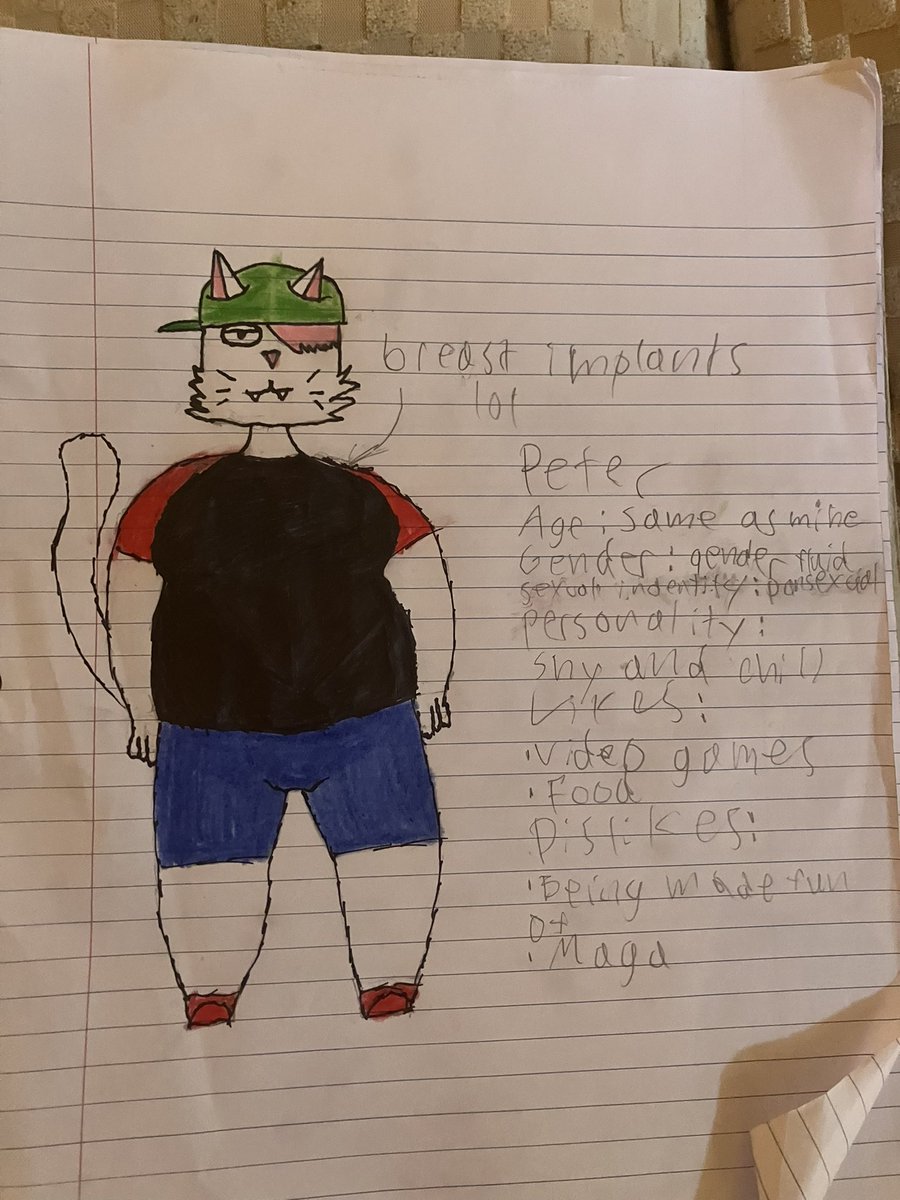 breast implants
lol
Peter
Age: same as mine
Gender: gender fluid
sexual indentity: pansexual
personality:
shy and chill
Likes:
• video games
• Food
Dislikes:
• Being made fun
of
• Maga